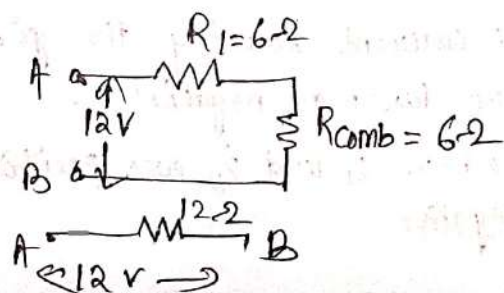 R1=6Ω
A
12V
Rcomb = 6Ω
B
12Ω
A B
12 V